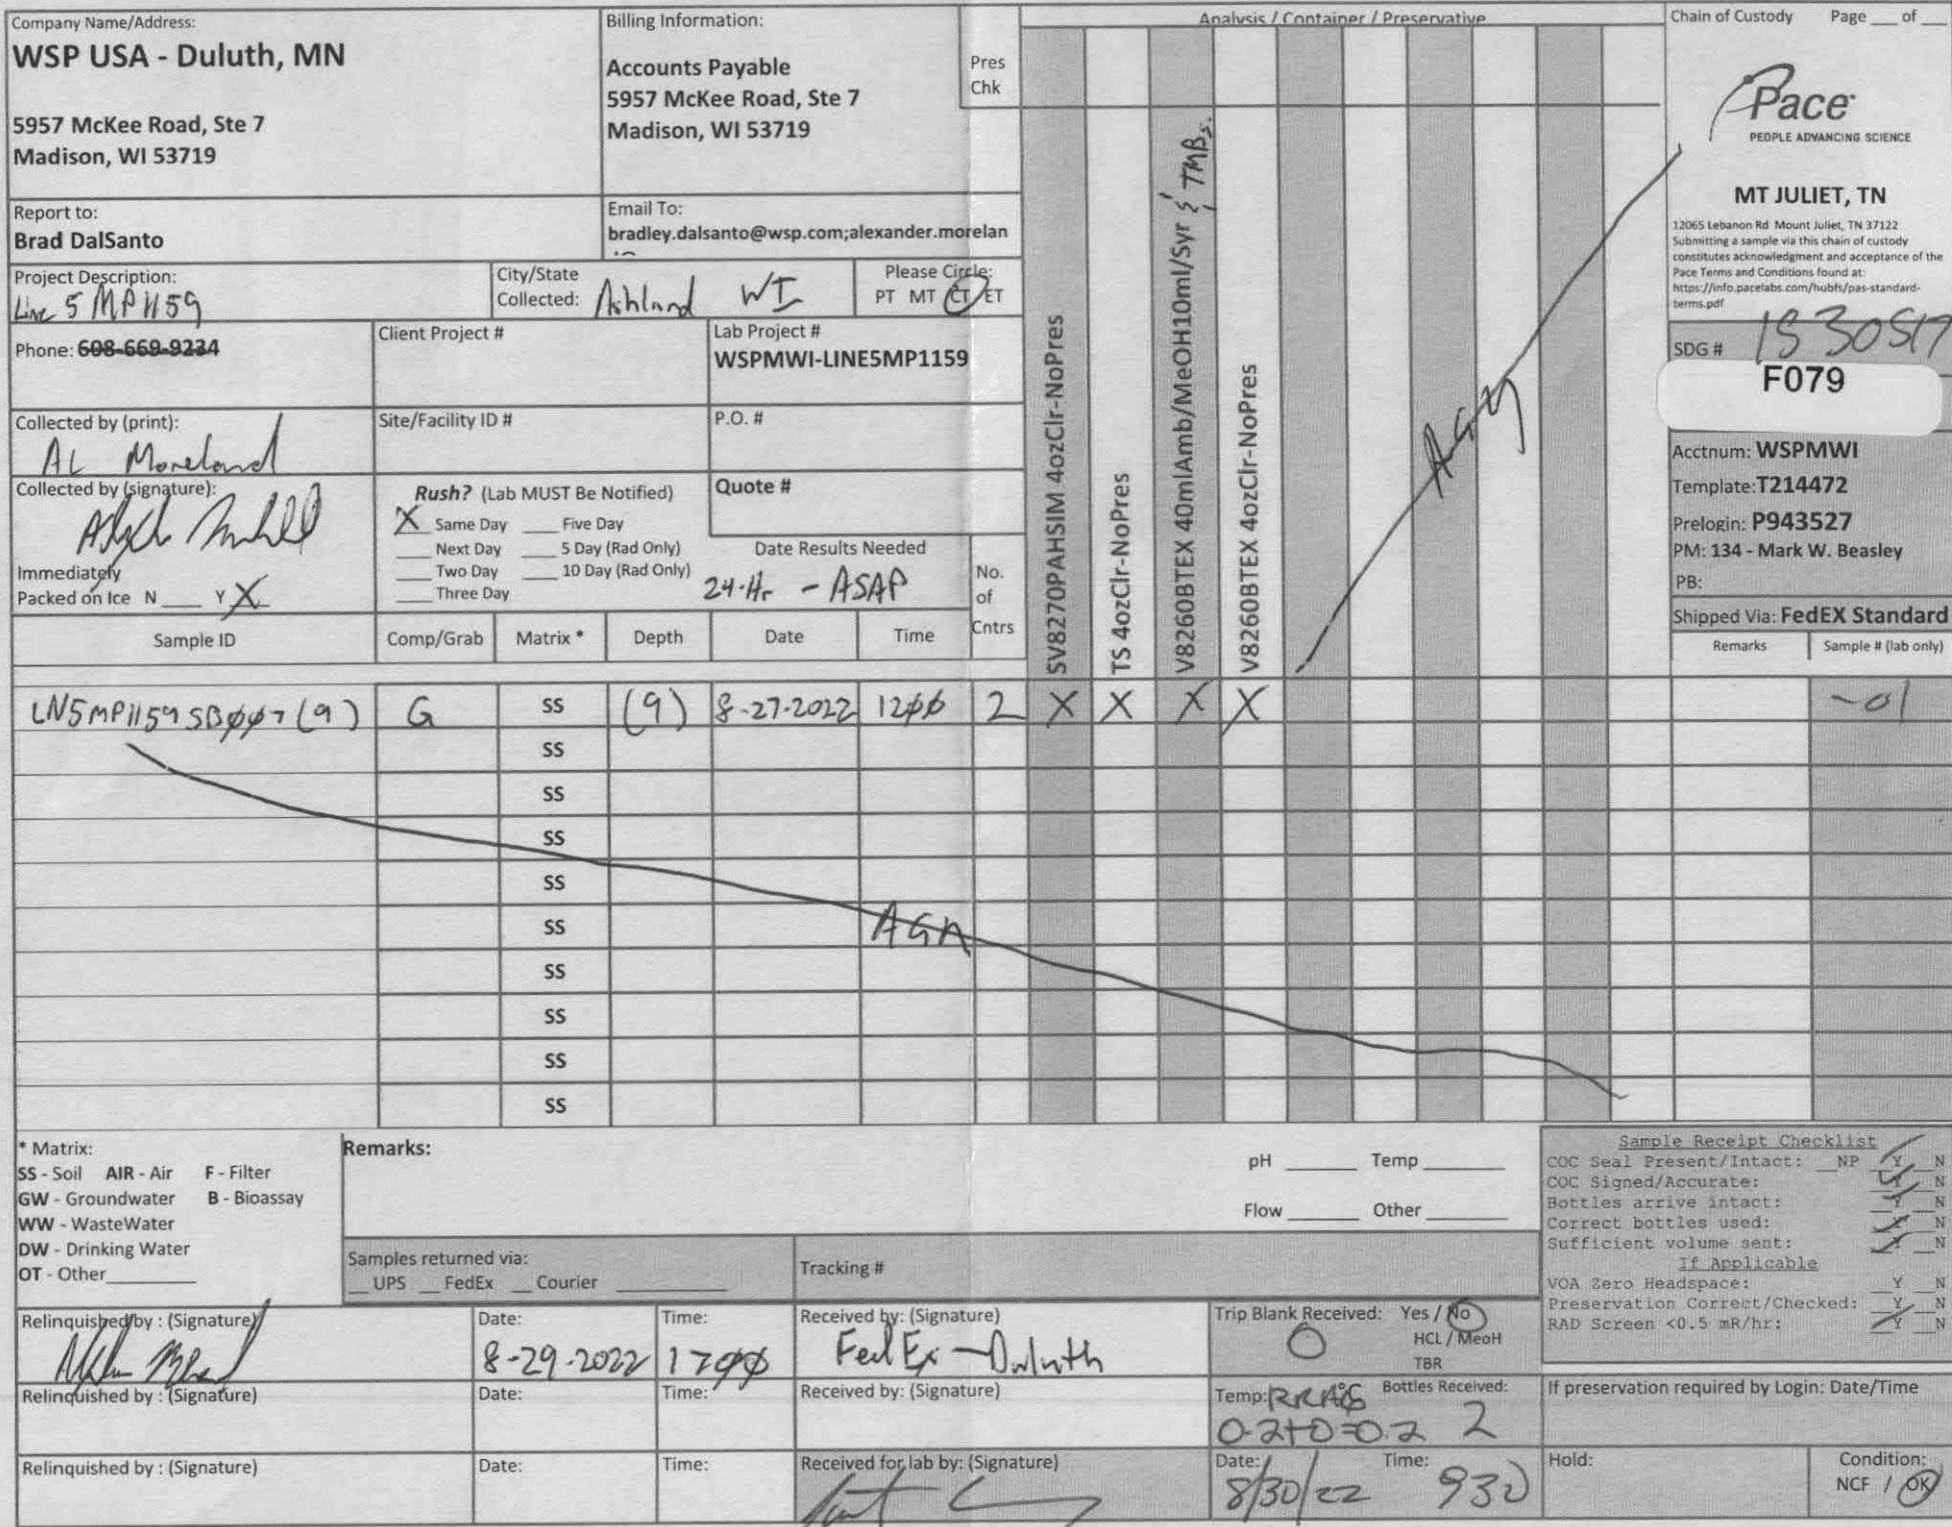 Company Name/Address:
WSP USA - Duluth, MN
5957 McKee Road, Ste 7
Madison, WI 53719
Billing Information:
Accounts Payable
5957 McKee Road, Ste 7
Madison, WI 53719
Pres
Chk
Analysis / Container / Preservative
Chain of Custody Page ___ of ___
Pace
PEOPLE ADVANCING SCIENCE
MT JULIET, TN
12065 Lebanon Rd Mount Juliet, TN 37122
Submitting a sample via this chain of custody
constitutes acknowledgment and acceptance of the
Pace Terms and Conditions found at:
https://info.pacelabs.com/hubfs/pas-standard-
terms.pdf
Report to:
Brad DalSanto
Email To:
bradley.dalsanto@wsp.com;alexander.morelan
Project Description:
Line 5 MP1159
City/State
Collected: Ashland WI
Please Circle:
PT MT CT ET
Phone: 608-669-9234
Client Project #
Lab Project #
WSPMWI-LINE5MP1159
Collected by (print):
AL Moreland
Site/Facility ID #
P.O. #
Collected by (signature):
Immediately
Packed on Ice N ___ Y X
Rush? (Lab MUST Be Notified)
X Same Day ___ Five Day
___ Next Day ___ 5 Day (Rad Only)
___ Two Day ___ 10 Day (Rad Only)
___ Three Day
Quote #
Date Results Needed
24-Hr - ASAP
No.
of
Cntrs
SV8270PAHSIM 4ozClr-NoPres
TS 4ozClr-NoPres
V8260BTEX 40mlAmb/MeOH10ml/Syr & TMBs.
V8260BTEX 4ozClr-NoPres
AGM
SDG # 1530517
F079
Acctnum: WSPMWI
Template:T214472
Prelogin: P943527
PM: 134 - Mark W. Beasley
PB:
Shipped Via: FedEX Standard
Remarks Sample # (lab only)
Sample ID Comp/Grab Matrix * Depth Date Time
LN5MP1159SB007 (9) G SS (9) 8-27-2022 1200 2 X X X X -01
SS
SS
SS
SS
SS
AGM
SS
SS
SS
SS
* Matrix:
SS - Soil AIR - Air F - Filter
GW - Groundwater B - Bioassay
WW - WasteWater
DW - Drinking Water
OT - Other
Remarks:
pH ___ Temp ___
Flow ___ Other ___
Samples returned via:
__ UPS __ FedEx __ Courier
Tracking #
Sample Receipt Checklist
COC Seal Present/Intact: __NP Y N
COC Signed/Accurate: Y N
Bottles arrive intact: Y N
Correct bottles used: Y N
Sufficient volume sent: Y N
If Applicable
VOA Zero Headspace: Y N
Preservation Correct/Checked: Y N
RAD Screen <0.5 mR/hr: Y N
Relinquished by : (Signature)
Date:
8-29-2022
Time:
1700
Received by: (Signature)
FedEx - Duluth
Trip Blank Received: Yes / No
0
HCL / MeoH
TBR
Relinquished by : (Signature)
Date:
Time:
Received by: (Signature)
Temp: °C Bottles Received:
0.2+0=0.2 2
If preservation required by Login: Date/Time
Relinquished by : (Signature)
Date:
Time:
Received for lab by: (Signature)
Date:
8/30/22
Time:
930
Hold:
Condition:
NCF / OK